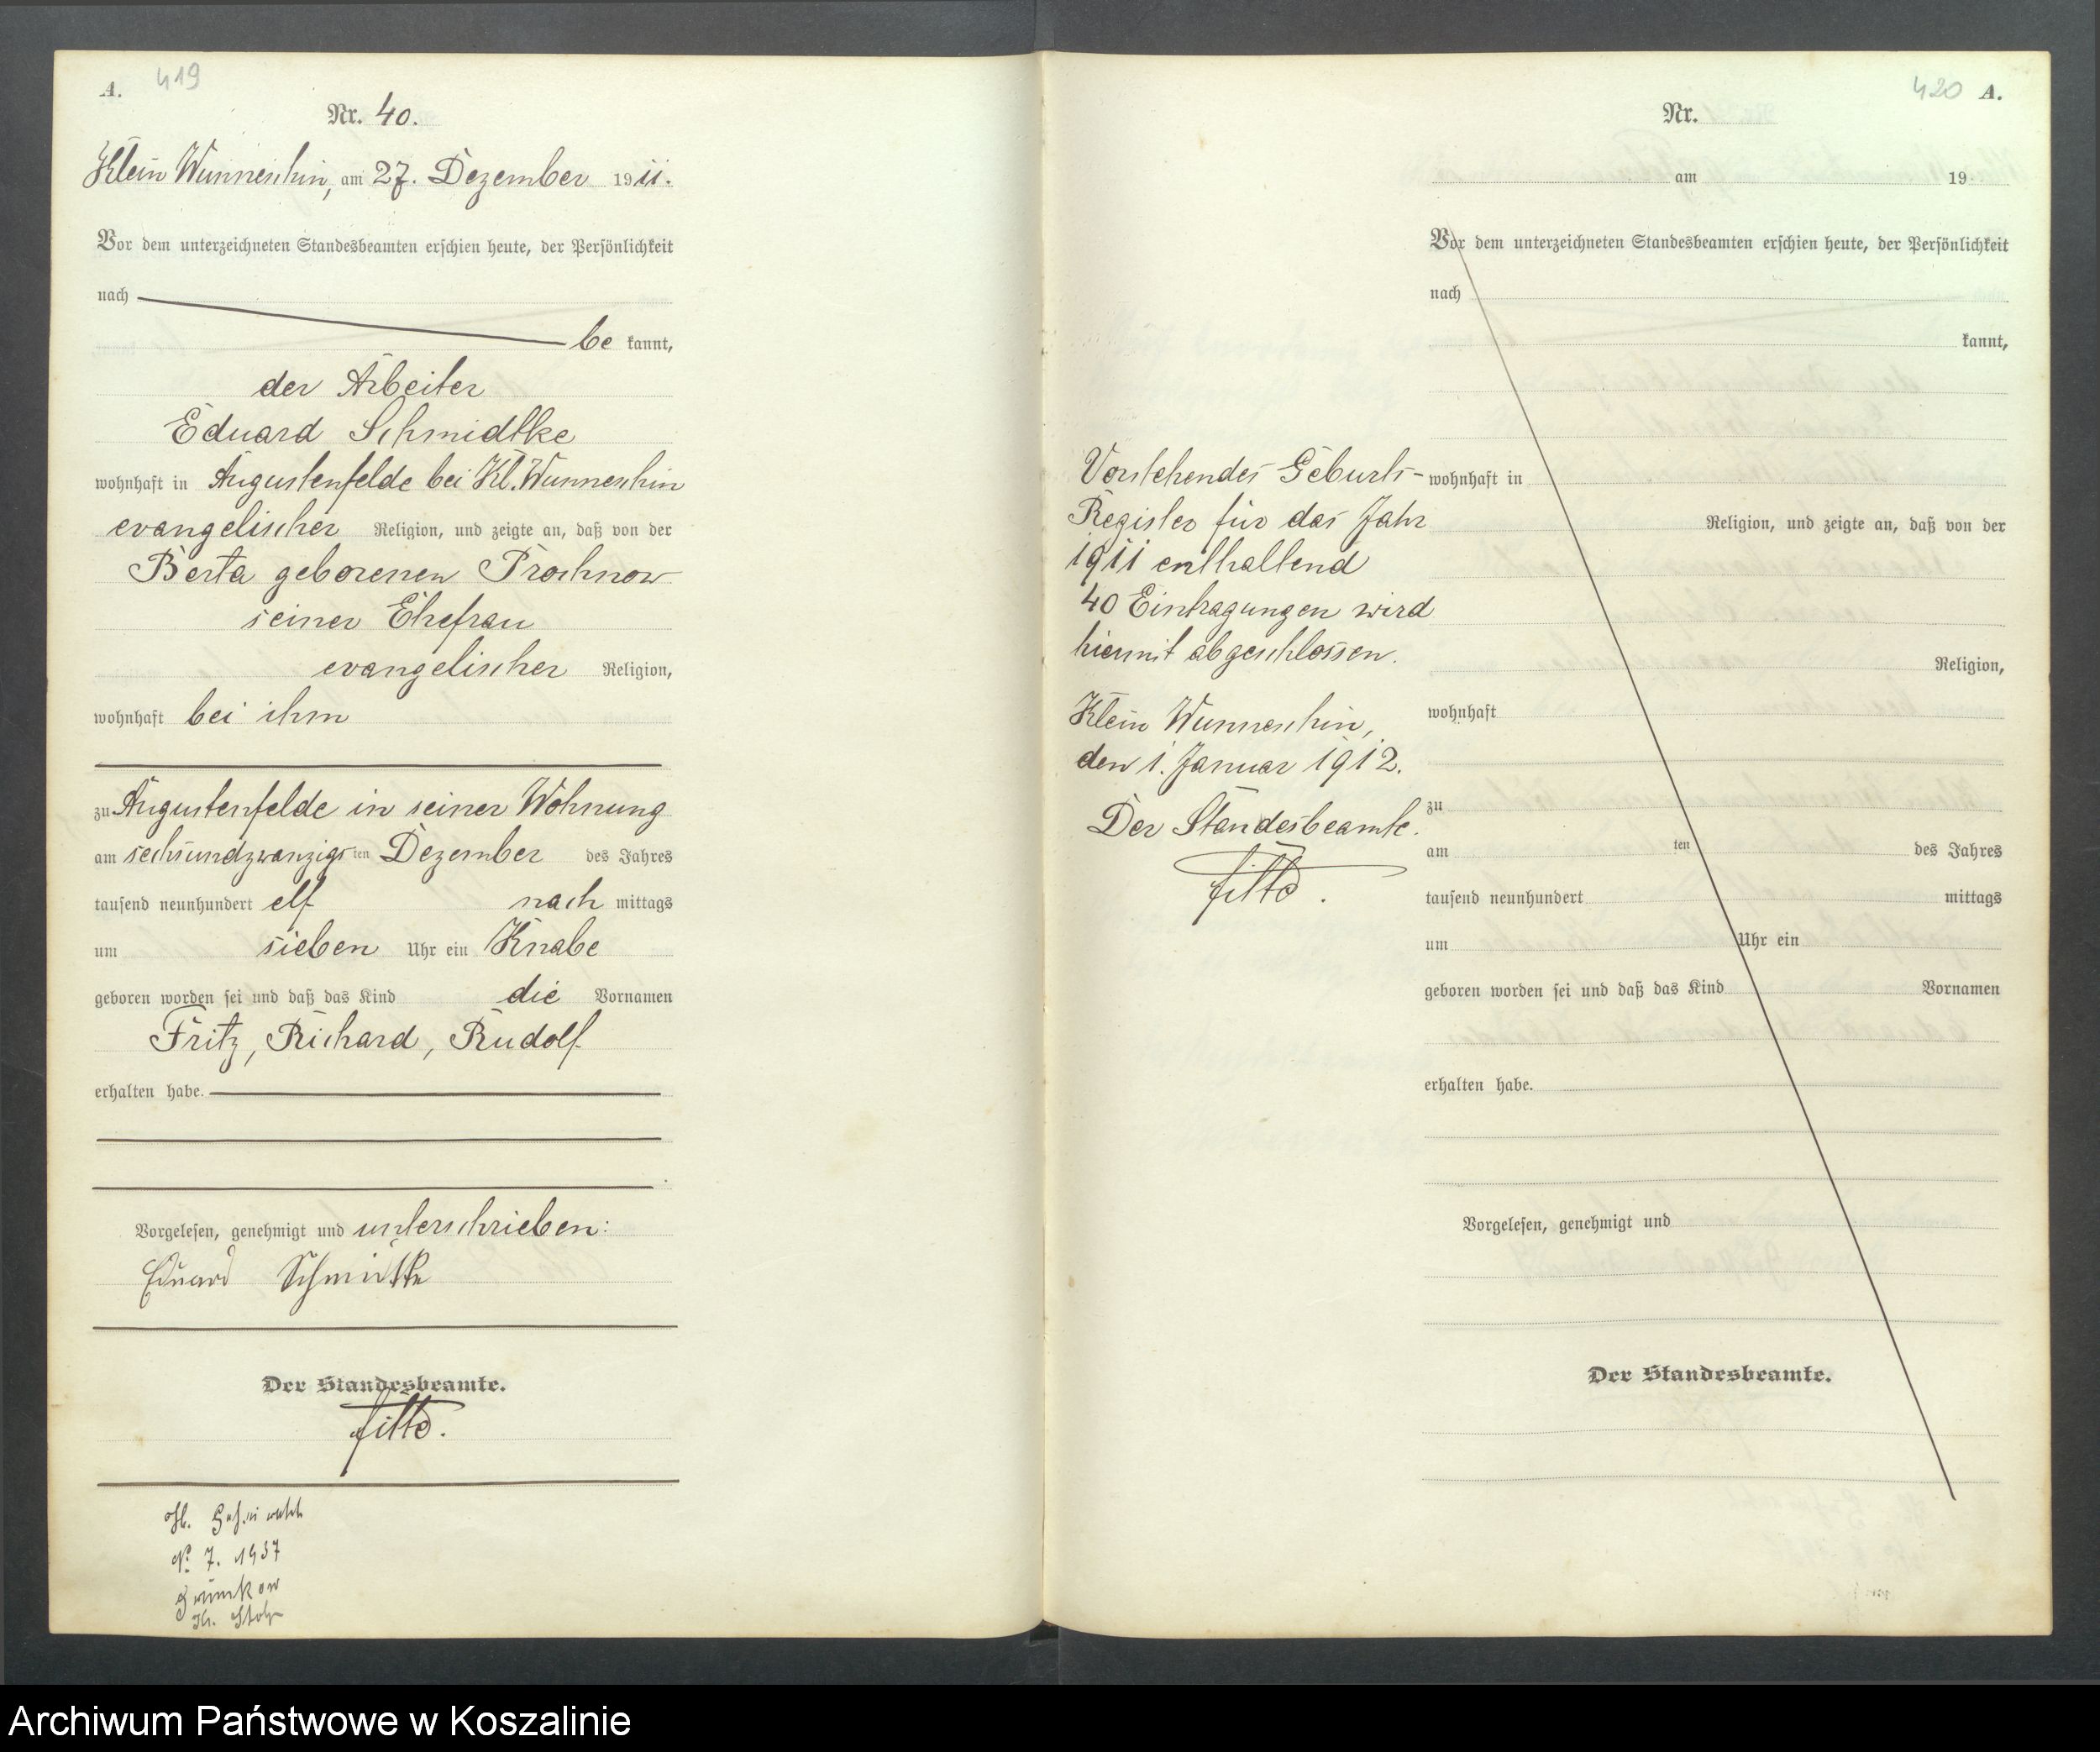 A. 419
Nr. 40.
Klein Wunneschin, am 27. Dezember 1911.
Vor dem unterzeichneten Standesbeamten erschien heute, der Persönlichkeit
nach
be kannt,
der Arbeiter
Eduard Schmidtke
wohnhaft in Augustenfelde bei Kl. Wunneschin
evangelischer Religion, und zeigte an, daß von der
Berta geborenen Prochnow
seiner Ehefrau
evangelischer Religion,
wohnhaft bei ihm
zu Augustenfelde in seiner Wohnung
am sechsundzwanzigsten Dezember des Jahres
tausend neunhundert elf nach mittags
um sieben Uhr ein Knabe
geboren worden sei und daß das Kind die Vornamen
Fritz, Richard, Rudolf
erhalten habe.
Vorgelesen, genehmigt und unterschrieben:
Eduard Schmidtke
Der Standesbeamte.
No 7. 1937
Grumkow
420 A.
Nr.
am 19
Vor dem unterzeichneten Standesbeamten erschien heute, der Persönlichkeit
nach
kannt,
wohnhaft in
Religion, und zeigte an, daß von der
Religion,
wohnhaft
zu
am ten des Jahres
tausend neunhundert mittags
um Uhr ein
geboren worden sei und daß das Kind Vornamen
erhalten habe.
Vorgelesen, genehmigt und
Der Standesbeamte.
Vorstehendes Geburts-
Register für das Jahr
1911 enthaltend
40 Eintragungen wird
hiermit abgeschlossen.
Klein Wunneschin,
den 1. Januar 1912.
Der Standesbeamte.
Archiwum Państwowe w Koszalinie